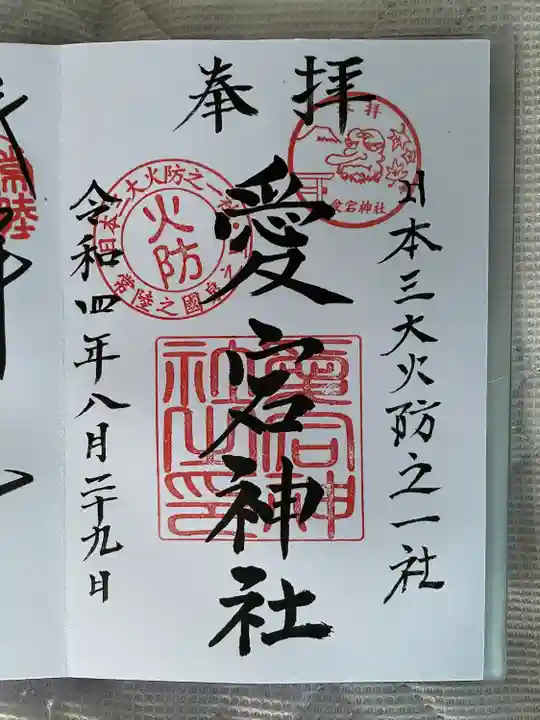 奉拝
日本三大火防之一社
愛宕神社
令和四年八月二十九日
愛宕神社
火防
日本三大火防之一
常陸之國
常陸